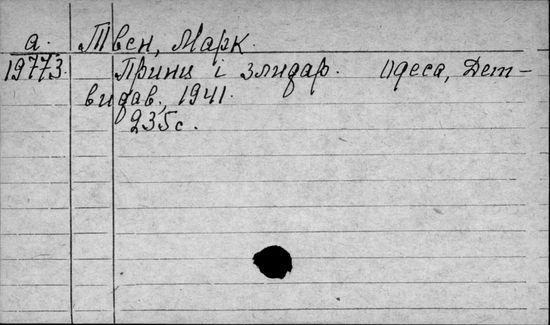 а. Твен, Марк.
19773. Принц і злидар. Одеса, Дет-
видав, 1941.
235 с.